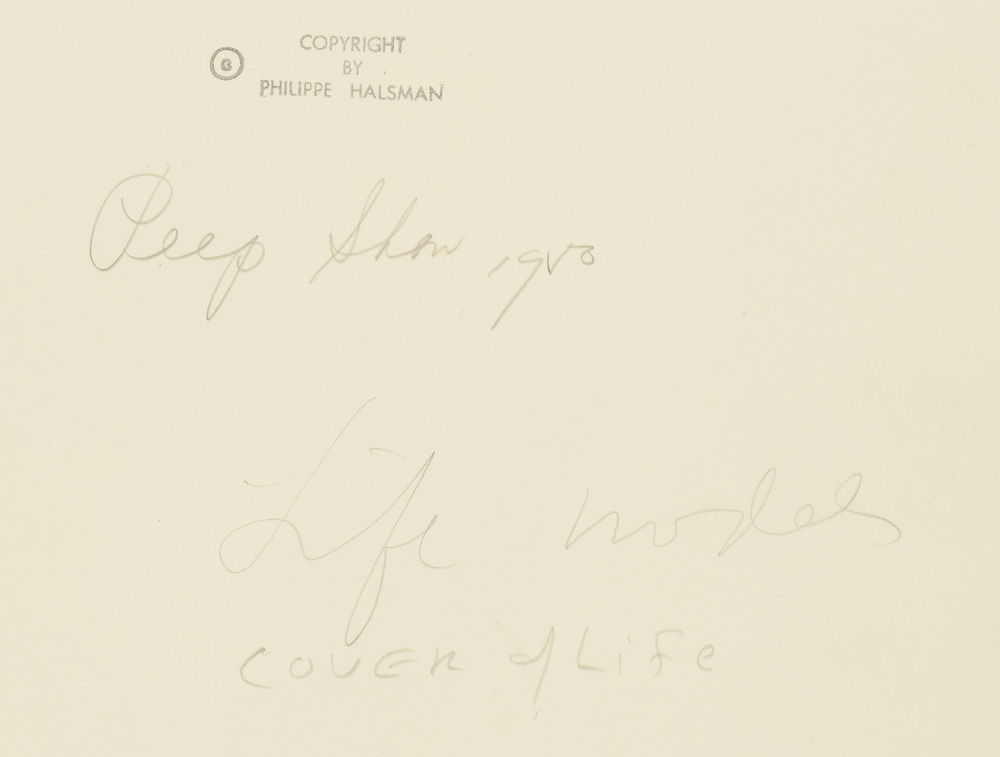 © COPYRIGHT
BY
PHILIPPE HALSMAN
Peep Show, 1950
Life models
COVER of Life